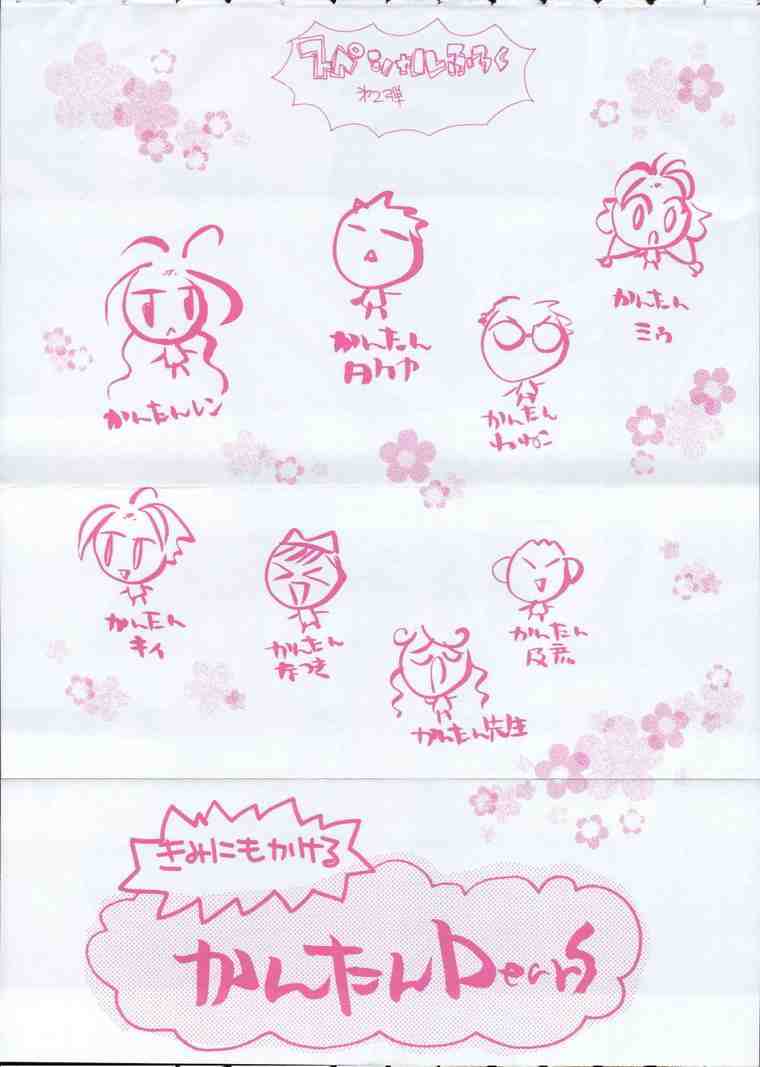 スペシャルふろく
第2弾
かんたん
ミウ
かんたん
タケヤ
かんたんレン
かんたん
ねねこ
かんたん
キィ
かんたん
なつき
かんたん
及彦
かんたん先生
きみにもかける
かんたんDearS